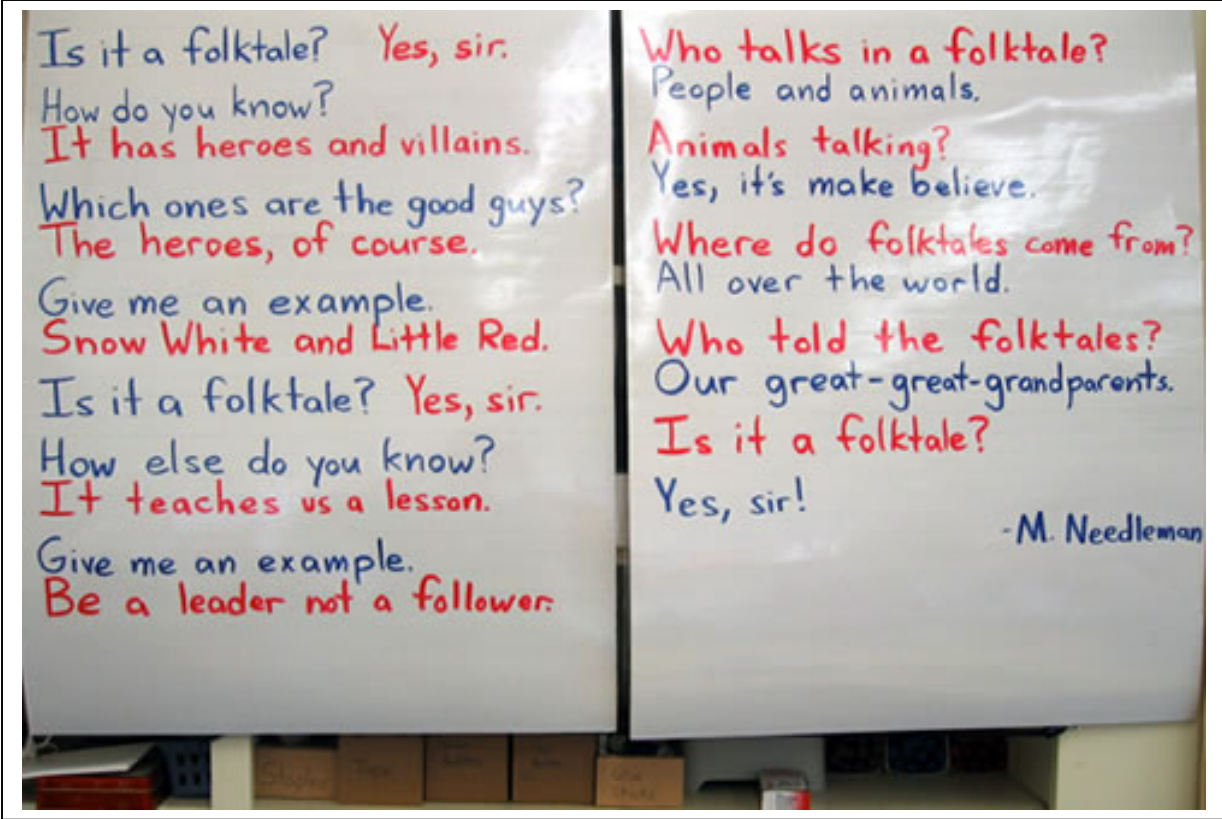 Is it a folktale? Yes, sir.
How do you know?
It has heroes and villains.
Which ones are the good guys?
The heroes, of course.
Give me an example.
Snow White and Little Red.
Is it a folktale? Yes, sir.
How else do you know?
It teaches us a lesson.
Give me an example.
Be a leader not a follower.
Who talks in a folktale?
People and animals.
Animals talking?
Yes, it's make believe.
Where do folktales come from?
All over the world.
Who told the folktales?
Our great-great-grandparents.
Is it a folktale?
Yes, sir!
-M. Needleman
Staples
Tape
Glue
sticks